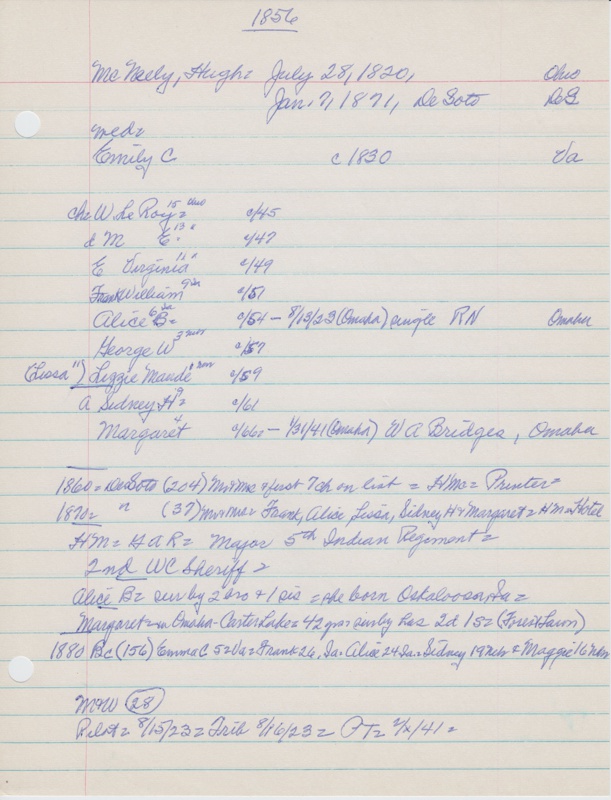 1856
McNeely, Hugh = July 28, 1820, Ohio
Jan. 7, 1871, DeSoto DeS
med =
Emily C c 1830 Va
ch = W LeRoy = 15 Ohio c/45
d M E. 13 " c/47
E Virginia 11 " c/49
Frank William 9 Ia c/51
Alice B = 6 Ia c/54 - 8/13/23 (Omaha) single RN Omaha
George W 3 c/57
(Lissa ") Lizzie Maude c/59
a Sidney H = 9 c/61
Margaret 4 c/66 = - 1/31/41 (Omaha) W A Bridges, Omaha
1860 = DeSoto (204) Mr & Mrs & first 7 ch on list = HMc = Printer =
1870 = " (37) Mr & Mrs = Frank, Alice, Lissa, Sidney H & Margaret = HM = Hotel
HM = GAR = Major 5th Indian Regiment =
2nd WC Sheriff =
Alice B = sur by 2 bro & 1 sis = she born Oskaloosa, Ia =
Margaret = in Omaha - Carter Lake = 42 yrs = sur by hus 2d 1s = (Forest Lawn)
1880 Bc (156) Emma C 52 Va = Frank 26, Ia = Alice 24 Ia = Sidney 19 Nebr & Maggie 16 Nebr
M&W (28)
Pilot = 8/15/23 = Trib 8/16/23 = PT = 2/x/41 =